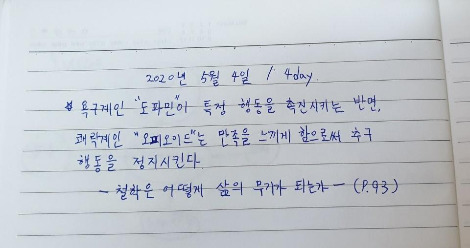 2020년 5월 4일 / 4day.
* 욕구계인 "도파민"이 특정 행동을 촉진시키는 반면,
쾌락계인 "오피오이드"는 만족을 느끼게 함으로써 추구
행동을 정지시킨다.
- 철학은 어떻게 삶의 무기가 되는가 - (P.93)